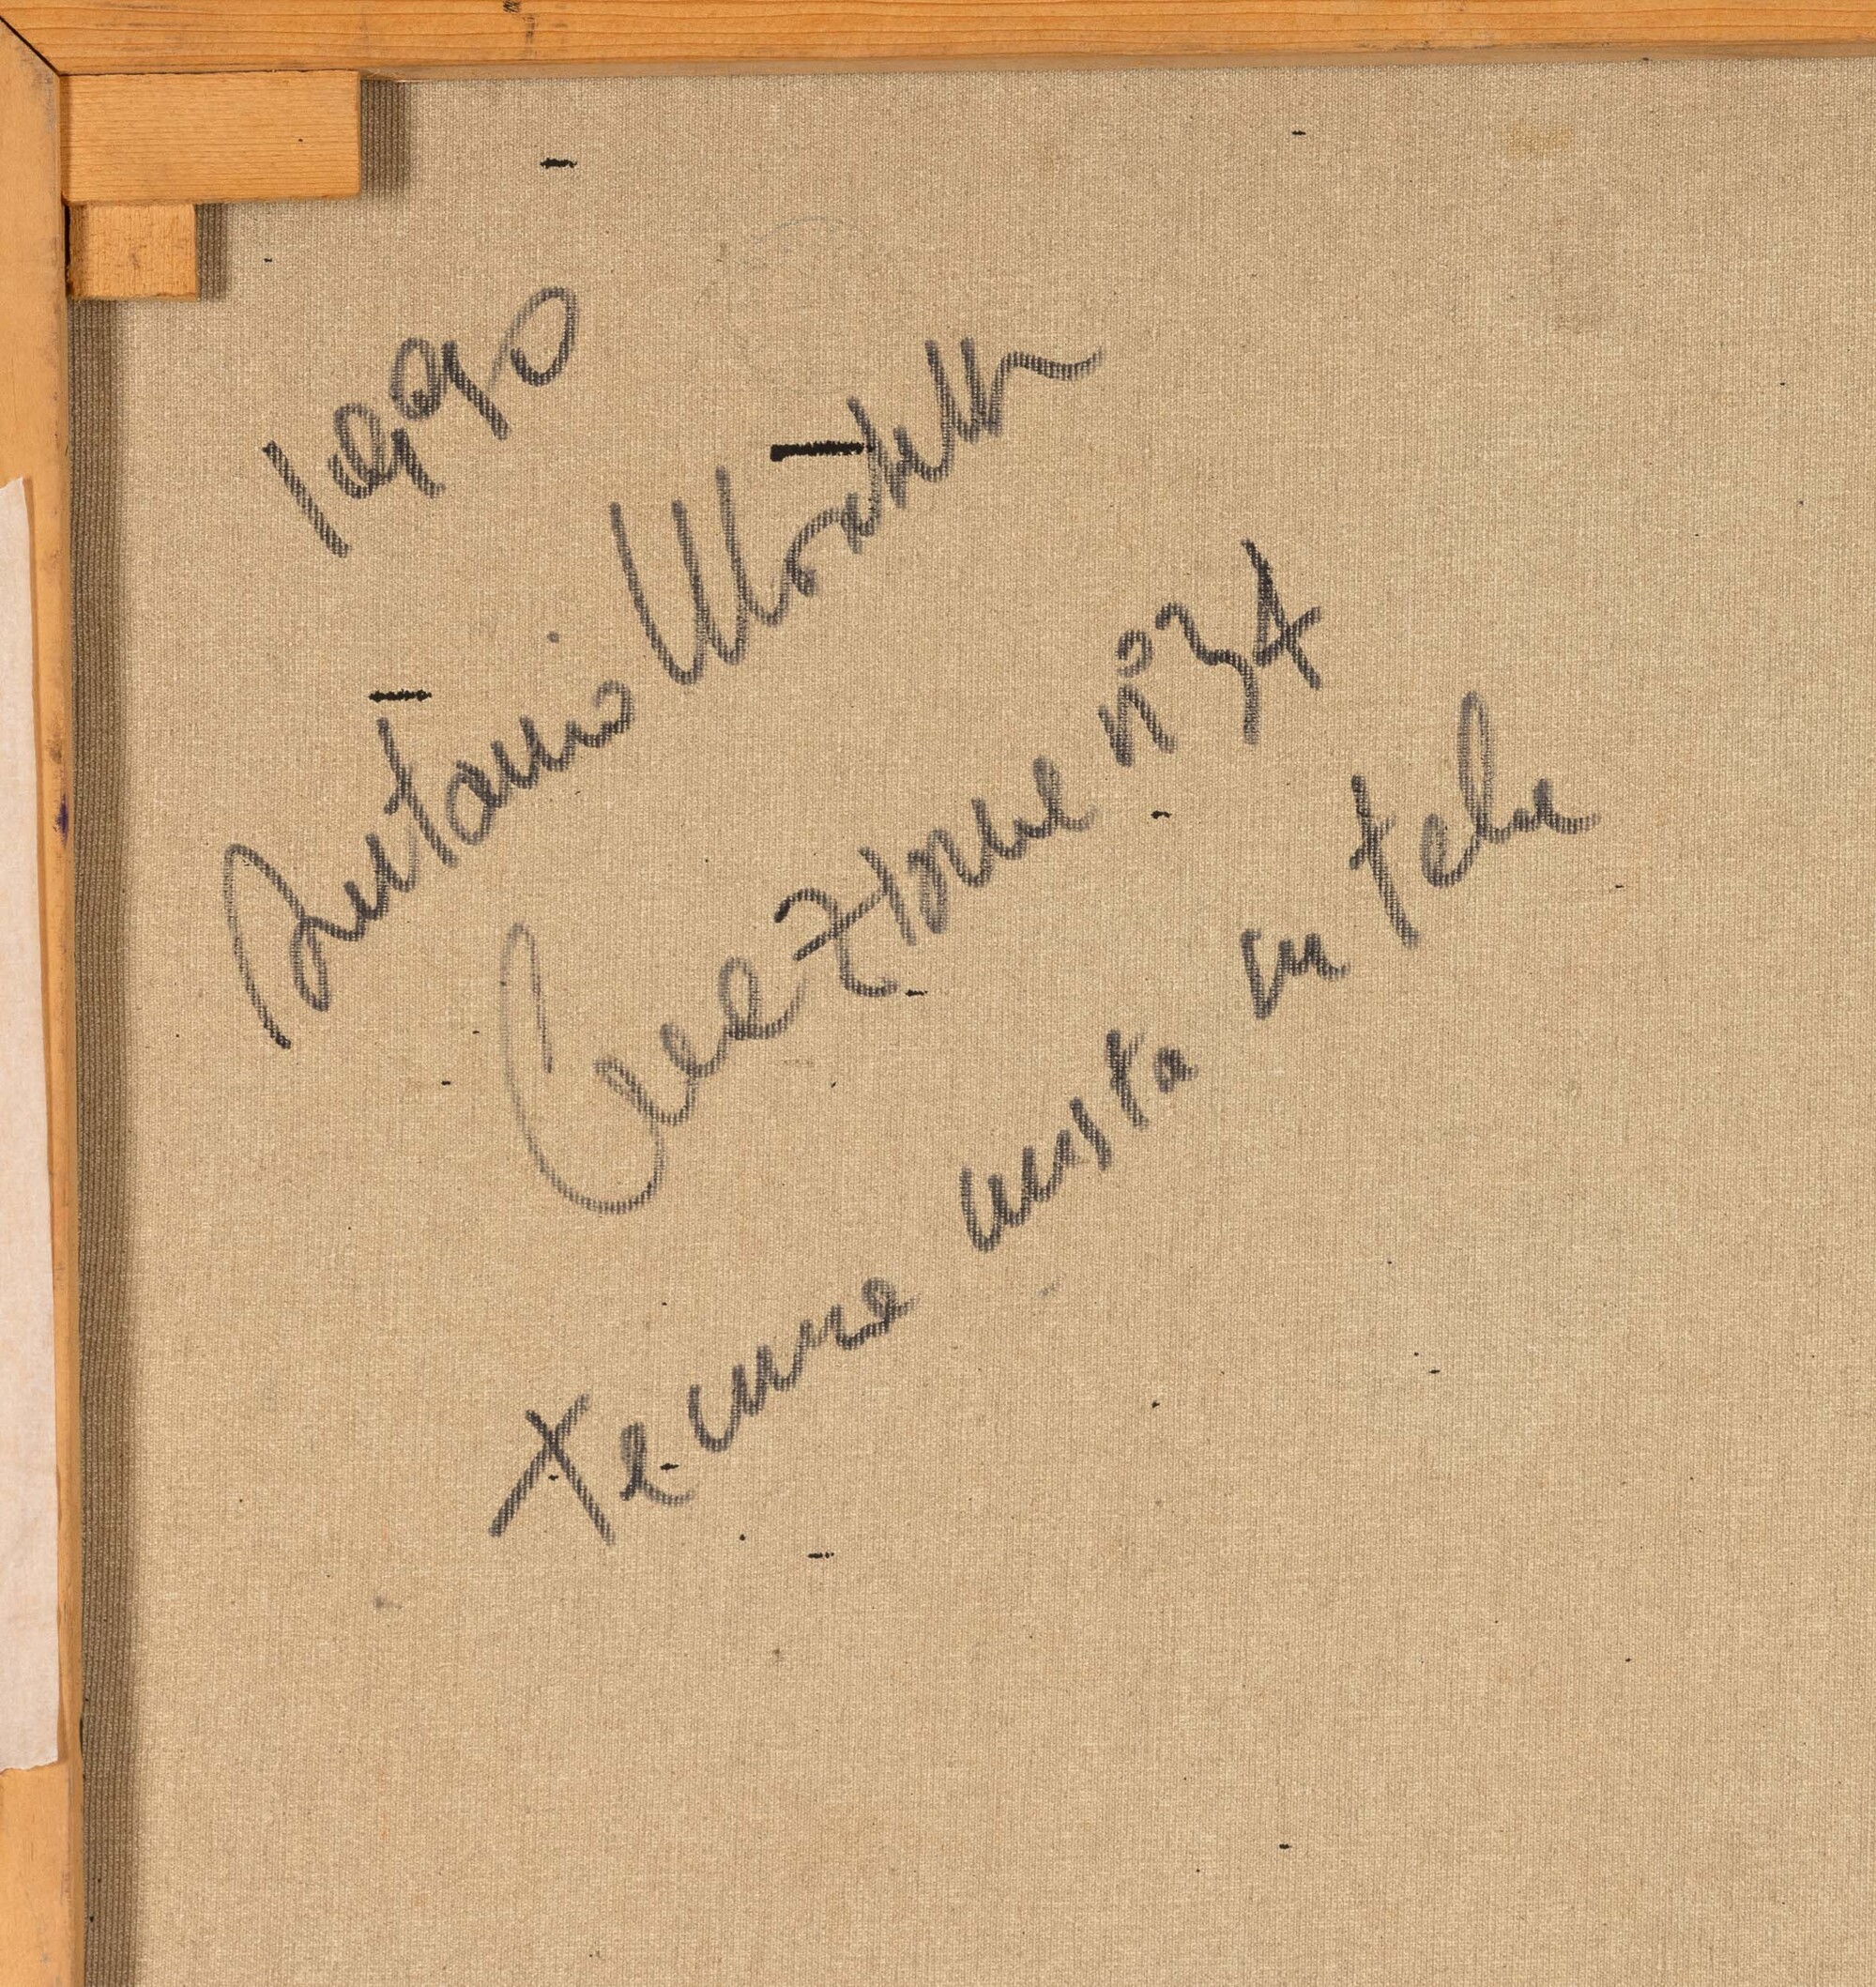 1990
Antonio
Creazione n° 34
Tecnica mista su tela